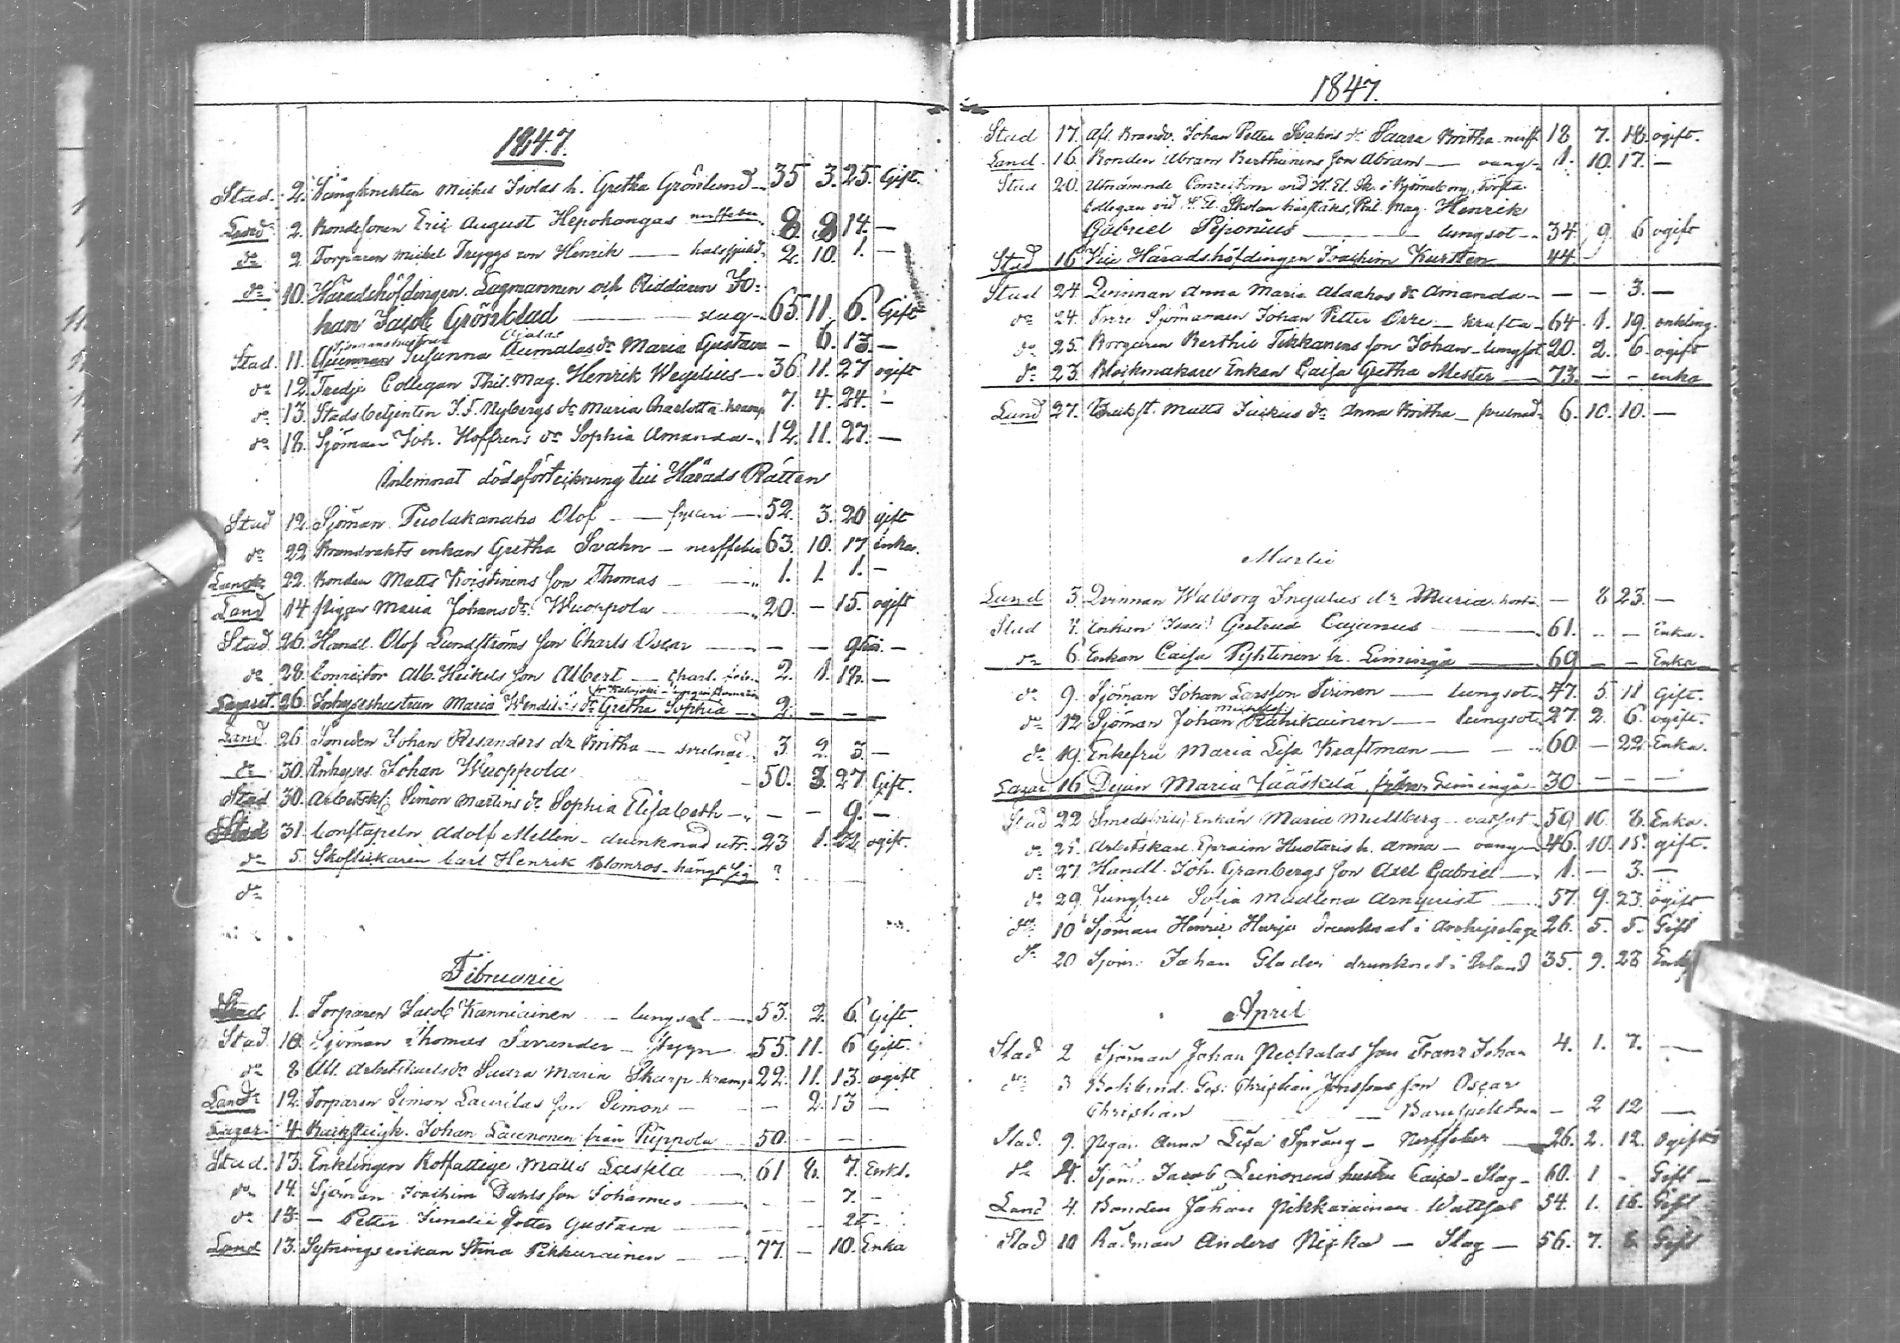 1847.
Stad. 2. Gångknekten Mickel Isolas h. Gretha Grönlund 35 3. 25. Gift.
Land 2. Bondesonen Eric August Hepokangas nerffeber 8. 8 14. —
do 2 Torparen Mickel Tryggs son Henrik — halssjukd. 2. 10. 1. —
do 10. Häradshöfdingen Lagmannen och Riddaren Jo-
han Jacob Grönblad — slag 65. 11. 6. Gift
Stad. 11. Susanna dr Maria Gustava — 6. 13. —
do 12. Tredje Collegan Phil. Mag. Henrik Wegelius — 36 11. 27 ogift
do 13. Stadsbetjenten J. F. Nybergs dr Maria Charlotta kramp 7. 4. 24. —
do 18. Sjöman Joh. Hoffrens dr Sophia Amanda — 12. 11. 27. —
Inlemnat dödsförteckning till Härads Rätten
Stad 12. Sjöman Puolakanaho Olof — 52. 3. 20 gift
do 22 Brandvakts enkan Gretha Svahn — nerffeber 63. 10. 17 Enka.
22. Bonden Matts Koistinens son Thomas — 1. 1. 1. —
Land 14 Pigan Maria Johansdr Wuoppola — 20. — 15. ogift
Stad 26. Handl. Olof Lundströms son Charls Oscar — — —
do 28. Conrector Alb. Heikels son Albert — Sharl. feb. 2. 1. 12. —
Lazaret. 26. Inhyseshustrun Maria dr Gretha Sophia — 2. — — —
Land 26 Smeden Johan Resanders dr Britha — 3 2 3 —
do 30. Inhyses Johan Wuoppola — 50. 3. 27 Gift.
Stad 30. Arbetsk. Simon Martins dr Sophia Elisabeth — — — 9. —
Stad 31. Constapeln Adolf Mellin — drunknad 23 1. 22 ogift.
do 5. Skoflickaren Carl Henrik Blomros — hängt sig ?
do
Februarii
Stad 1. Torparen Jacob Kanniainen — lungsot — 53. 2. 6. Gift.
Stad. 10. Sjöman Thomas Sevender — Stygn 55. 11. 6 Gift.
do 8 Afl. Arbetskarls dr Saara Maria Skarp — kramp 22. 11. 13. ogift
Land 12. Torparen Simon Lauritas son Simon — — 2. 13 —
Lazar. 4. Johan Leinonen från Piippola 50. — —
Stad. 13. Enklingen Rotfattige Matts Laspela 61 8. 7. Enkl.
do 14. Sjöman Joachim Dahls son Johannes — — — 7. —
do 13. — Petter dotter Gustava — — —
Land 13. Sytnings enkan Stina Pikkarainen — 77. — 10. Enka
1847.
Stad 17. Afl. Brandv. Johan Petter Svahns dr Saara Britha nerff. 18 7. 18. ogift.
Land. 16. Bonden Abram Karhunens son Abram — 1. 10. 17. —
Stad 20. Utnämnde Conrectorn vid H. El. Sk. i Björneborg, Första
Collegan vid H. El. Skolan härstädes, Phil. Mag. Henrik
Gabriel Peponius — lungsot — 34 9. 6 ogift
Stad 16 Vice Häradshöfdingen Joachim Kurtén 44.
Stad 24. Qvinnan Anna Maria Alaahos dr Amanda — — — 3. —
do 24. Sjömannen Johan Petter Orre — kräfta 64. 1. 19. enkling
do 25. Borgaren Berthil Tikkanens son Johan — lungsot 20. 2. 6. ogift
do 23. Blockmakare Enkan Caisa Gretha Mester — 73. — — enka
Land 27. Matts dr Anna Britha — 6. 10. 10. —
Martii
Land 3. Qvinnan Walborg Ingalas dr Maria — 8 23. —
Stad 7. Enkan Gertrud Cajanus — 61. — — Enka.
do 6. Enkan Caisa Pyhtinen fr. Limingo — 69 — — Enka
do 9. Sjöman Johan Larsson Sirinen — lungsot 47. 5 11 Gift.
do 12. Sjöman Johan Michel Rahikainen — lungsot 27. 2. 6. ogift.
do 19. Enkefru Maria Lisa Kraftman — 60 — 22 Enka.
Lazar. 16 Dejan Maria Jääskelä, från Limingo — 30 — — —
Stad 22 Enkan Maria Mellberg — vattsot — 59 10. 8. Enka.
do 25. Arbetskarl Ephraim Huotaris h. Anna — 46. 10. 15. gift.
do 27. Handl. Joh. Granbergs son Axel Gabriel — 1. — 3. —
do 29. Jungfru Sofia Madlena Arnquist — 57. 9. 23. ogift
do 10 Sjöman Henric Harju drunknat i Archipelage 26. 5. 5. Gift
do 20 Sjöm. Johan Glader drunknat i 35. 9. 28 Enkl.
April
Stad 2 Sjöman Johan son Franz Johan 4. 1. 7. —
do 3 Bokbind. Ges. Christian Jonssons son Oscar
Christian — — 2 12 —
Stad. 9. Pigan Anna Lisa Sprang — Nerffeber — 26. 2. 12. Ogift
do 4. Sjöm. Jacob Leinonens hustru Caisa — Slag — 60. 1 — Gift
Land 4. Bonden Johan Pikkarainen Wattsot 54. 1. 16. Gift
Stad 10 Rådman Anders Niska — Slag — 56. 7. 8 Gift